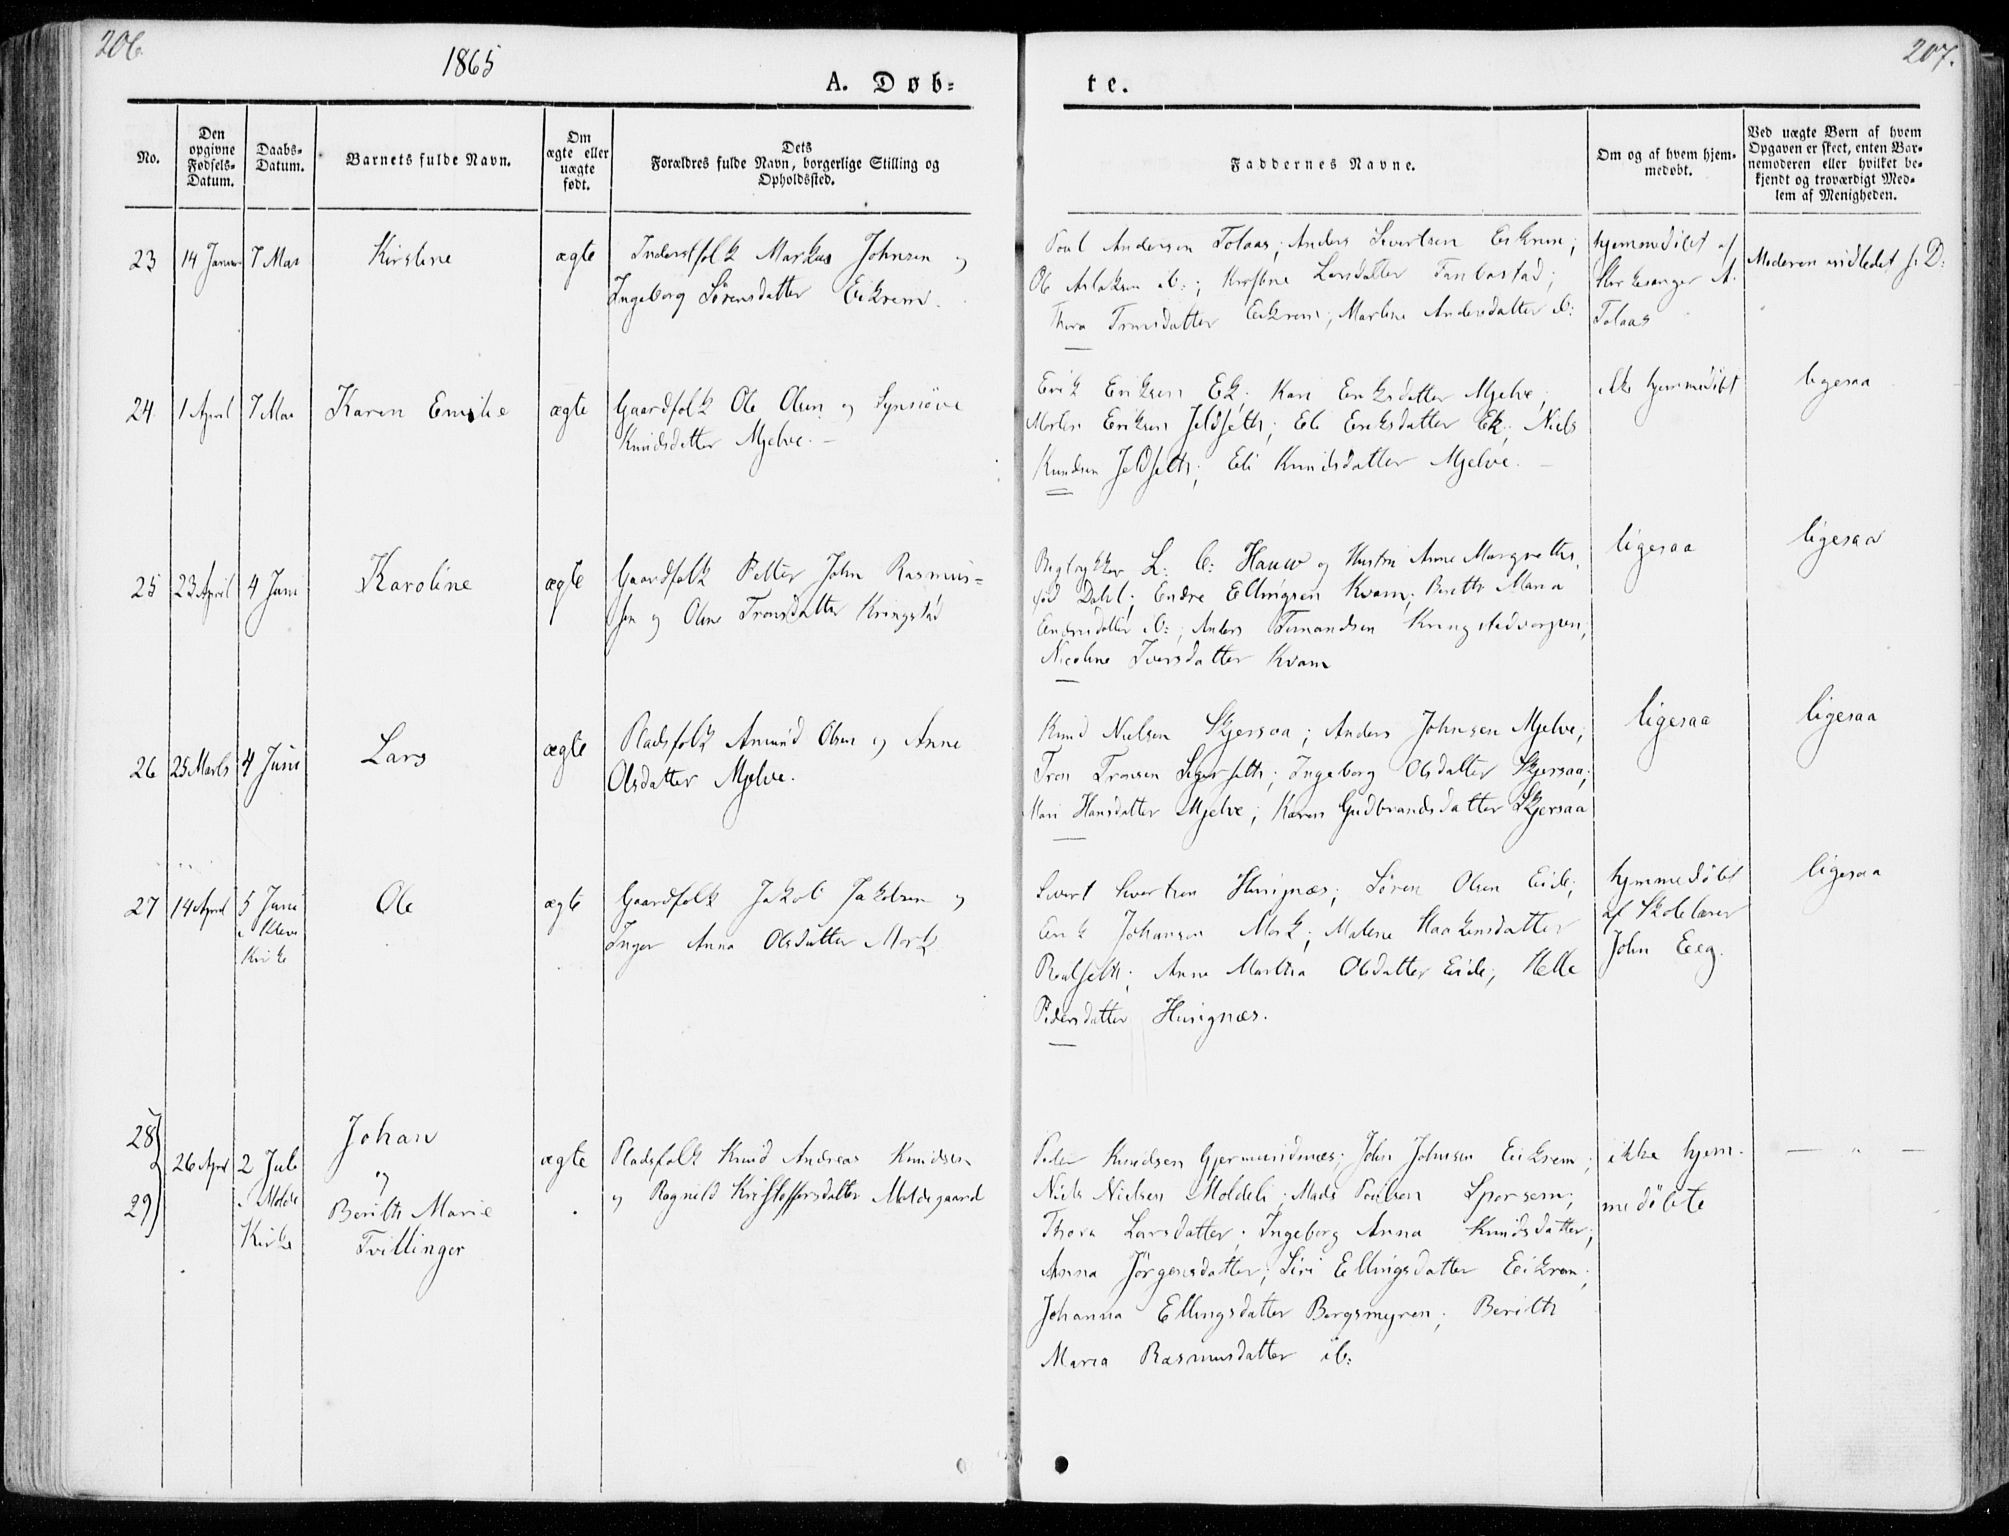 206.
1865
A. Døb-
te.
207.
No.
Den opgivne Fødsels-Datum.
Daabs-Datum.
Barnets fulde Navn.
Om ægte eller uægte født.
Dets
Forældres fulde Navn, borgerlige Stilling og
Opholdssted.
Faddernes Navne.
Om og af hvem hjem-
medøbt.
Ved uægte Børn af hvem
Opgaven er skeet, enten Bar-
nemoderen eller hvilket be-
kjendt og troværdigt Med-
lem af Menigheden.
23
14 Januar
7 Mai
Kirstine
ægte
Inderstfolk Markus Johnsen og
Ingeborg Sørensdatter Eikrem.
Poul Andersen Tolaas; Anders Sivertsen Eikrem;
Ole Aslaksen ib:; Kirstine Larsdatter Tanbastad;
Thora Tronsdatter Eikrem; Marline Andersdatter ib:
hjemmedøbt af
Kirkesanger A.
Tolaas
Moderen indledet s. D:
24
1 April
7 Mai
Karen Emilie
ægte
Gaardfolk Ole Olsen og Synnöve
Knudsdatter Mjelve. -
Erik Eriksen Ek; Kari Eriksdatter Mjelve;
Morten Eriksen Jeldseth; Eli Eriksdatter Ek; Niels
Knudsen Jeldseth; Eli Knudsdatter Mjelve. -
ikke hjemmedöbt
ligesaa
25
23 April
4 Juni
Karoline
ægte
Gaardfolk Petter John Rasmus-
sen og Oline Tronsdatter Kringstad
L. C: Hauw og Hustru Anne Margrethe,
fød Dahl; Endre Ellingsen Kvam; Berith Maria
Endresdatter ib:; Anders Kringstadvorpen;
Nicoline Iversdatter Kvam
ligesaa
ligesaa
26
25 Marts
4 Juni
Lars
ægte
Pladsfolk Amund Olsen og Anne
Olsdatter Mjelve.
Knud Nielsen Skjersaa; Anders Johnsen Mjelve;
Tron Tronsen Legerseth; Ingeborg Olsdatter Skjersaa;
Mari Hansdatter Mjelve; Karen Gudbrandsdatter Skjersaa
ligesaa
ligesaa
27
14 April
5 Juni
i Kleve
Kirke
Ole
ægte
Gaardfolk Jakob Jakobsen og
Inger Anna Olsdatter Mork
Sivert Sivertsen Husignæs; Sören Olsen Eide;
Erik Johansen Mork; Malene Haakensdatter
Realseth; Anne Martha Olsdatter Eide; Helle
Pedersdatter Husignæs.
hjemmedöbt
af Skolelærer
John Eeg.
ligesaa
28
29
26 April
2 Juli
i Molde
Kirke
Johan
og
Berith Marie
Tvillinger
ægte
Pladsfolk Knud Andreas Knudsen
og Ragnild Kristoffersdatter Moldegaard
Peder Knudsen Gjermundnæs; John Johnsen Eikrem;
Niels Nielsen Moldeli; Mads Poulsen Sporsem;
Thora Larsdatter; Ingeborg Anna Knudsdatter;
Anna Jörgensdatter; Siri Ellingsdatter Eikrem;
Johanna Ellingsdatter Bergsmyren; Berith
Maria Rasmusdatter ib:
ikke hjem-
medöbte
— " —